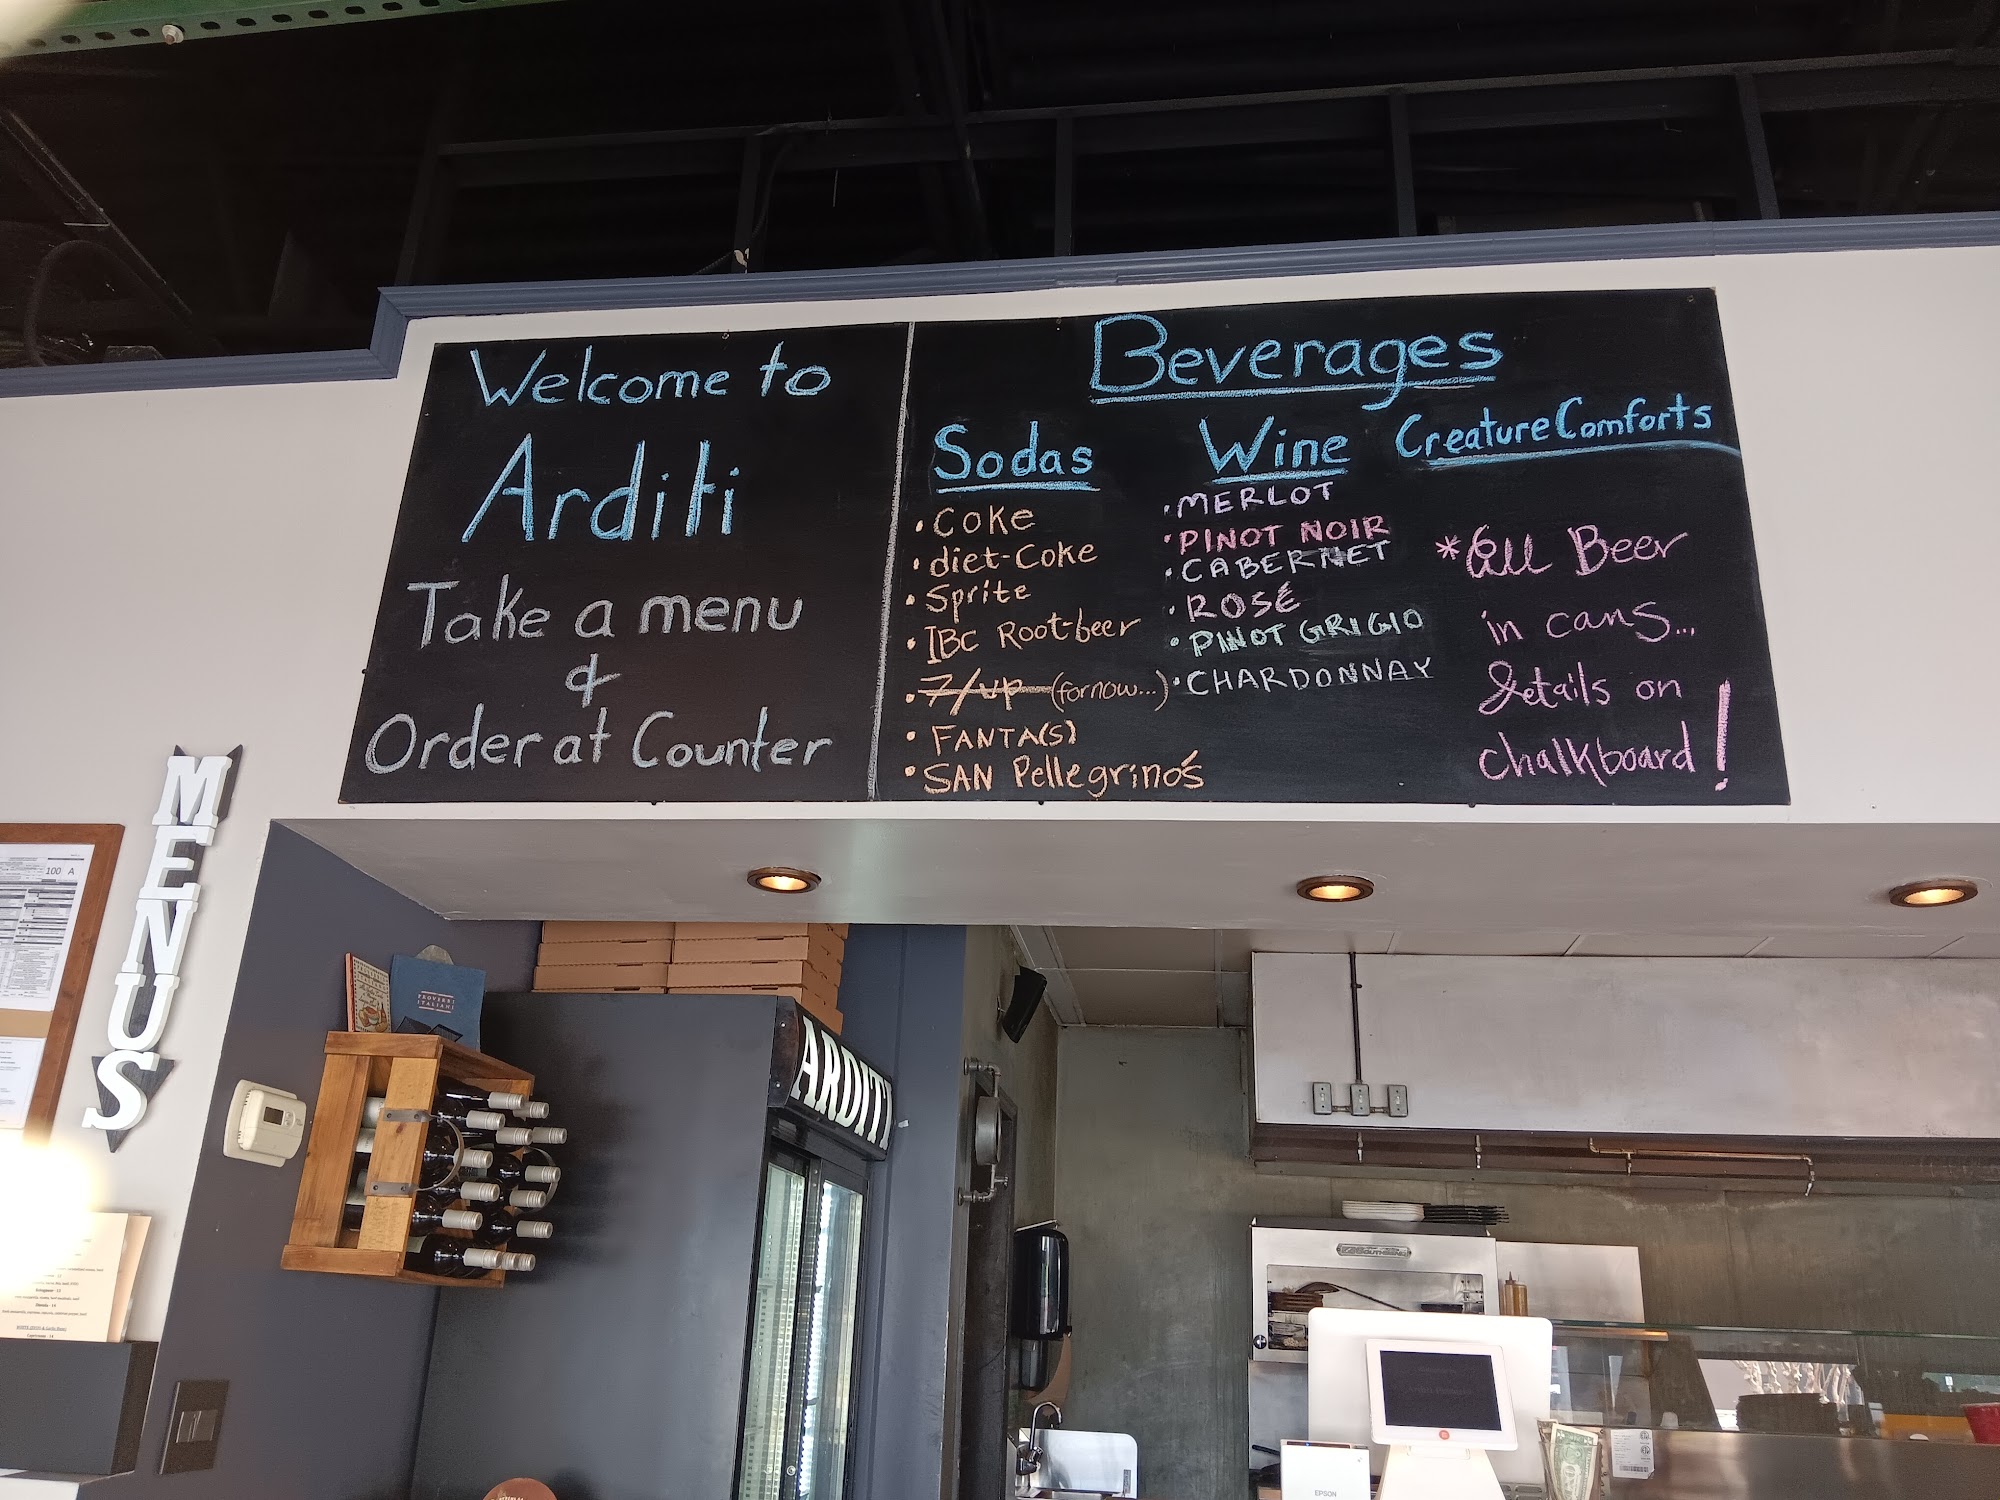 Welcome to
Arditi
Take a menu
&
Order at Counter
Beverages
Sodas
• Coke
• diet-Coke
• Sprite
• IBC Root-beer
• 7/up (for now...)
• FANTA(S)
• SAN Pellegrino's
Wine
• MERLOT
• PINOT NOIR
• CABERNET
• ROSÉ
• PINOT GRIGIO
• CHARDONNAY
Creature Comforts
*All Beer
in cans...
details on
chalkboard!
MENUS
100 A
PROVERBI
ITALIANI
ARDITI
SOUTHBEND
EPSON